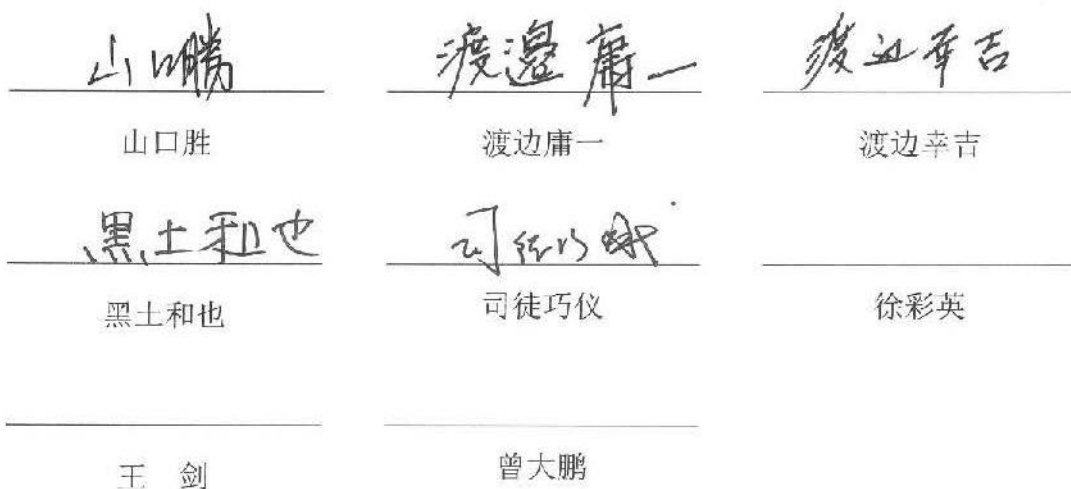 山口勝 渡邉庸一 渡边幸吉
山口胜 渡边庸一 渡边幸吉
黒土和也
黑土和也 司徒巧仪 徐彩英
王 剑 曾大鹏